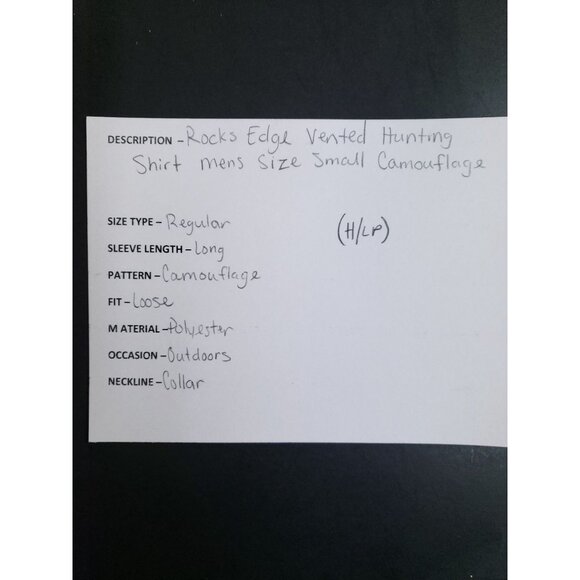 DESCRIPTION - Rocks Edge Vented Hunting
Shirt mens Size Small Camouflage
SIZE TYPE - Regular
(H/LP)
SLEEVE LENGTH - Long
PATTERN - Camouflage
FIT - Loose
MATERIAL - Polyester
OCCASION - Outdoors
NECKLINE - Collar